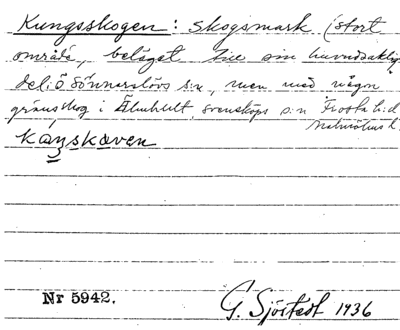 Kungsskogen: skogsmark (stort
område, beläget till sin huvudsaklig
del i Ö Sönnarslövs s:n, men med någon
gränsskog i Älmhult, Svensköps s:n Frosta h:d
kåŋskoven
Nr 5942.
G. Sjöstedt 1936